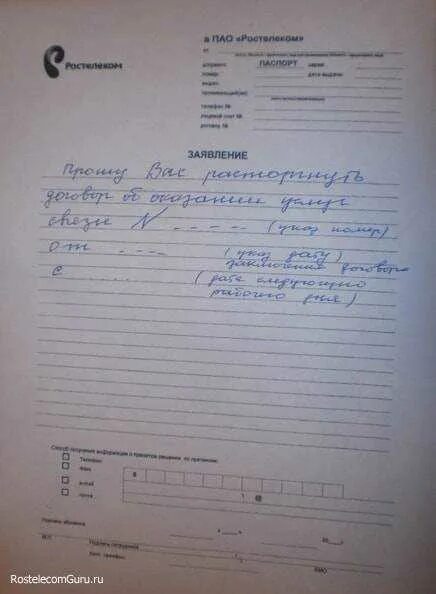 Ростелеком
в ПАО «Ростелеком»
от
документ ПАСПОРТ серия
номер дата выдачи
выдан
проживающий(ая)
телефон №
лицевой счет №
договор №
ЗАЯВЛЕНИЕ
Прошу Вас расторгнуть
договор об оказании услуг
связи N _ _ _ _ _ (указ номер)
от _ _ _ _ (указ дату)
заключения договора
с . . . . (дата следующего
рабочего дня)
Способ получения информации о принятом решении по претензии:
Телефон
Факс
8
e-mail
почта
@
Подпись абонента
« » 20 г.
М.П. Подпись сотрудника
ФИО
RostelecomGuru.ru